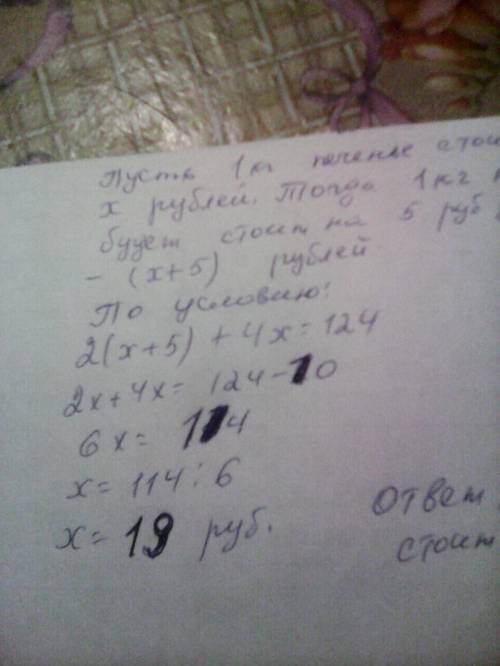 Пусть 1 кг печенье
х рублей. Тогда 1 кг
будет стоит на 5 руб
- (х+5) рублей
По условию:
2(х+5) + 4х = 124
2х+4х = 124-10
6х = 114
х = 114 : 6
х = 19 руб.
Ответ
стоит